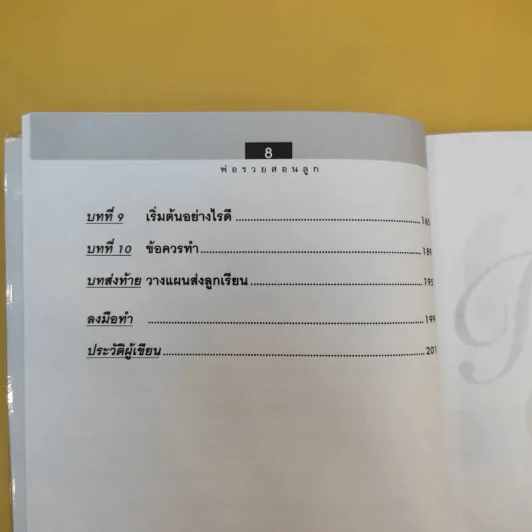 8
พ่อรวยสอนลูก
บทที่ 9 เริ่มต้นอย่างไรดี ........................................................ 165
บทที่ 10 ข้อควรทำ .................................................................... 189
บทส่งท้าย วางแผนส่งลูกเรียน .................................................... 195
ลงมือทำ .................................................................................... 199
ประวัติผู้เขียน ................................................................................ 201